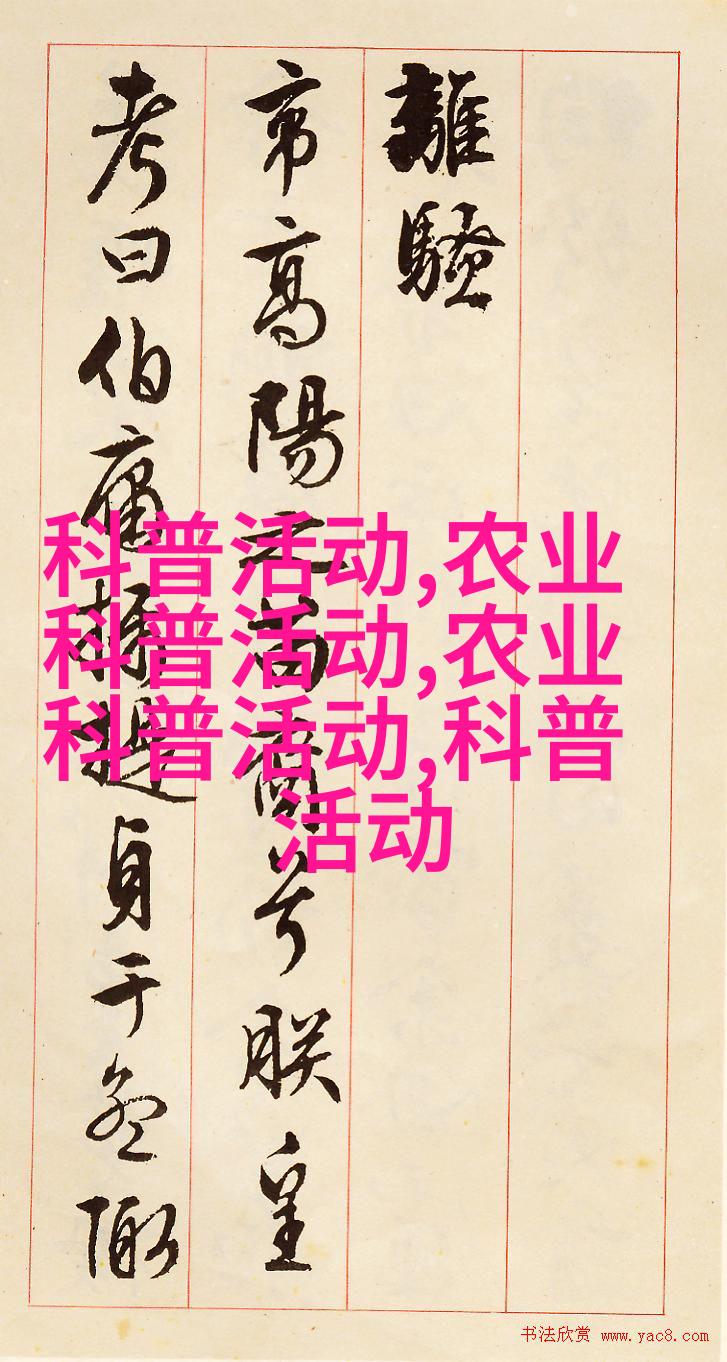 離騷
帝高陽之苗裔兮朕皇
考曰伯庸攝提貞于孟陬
科普活动,农业
科普活动,农业
科普活动,科普
活动
书法欣赏 www.yac8.com